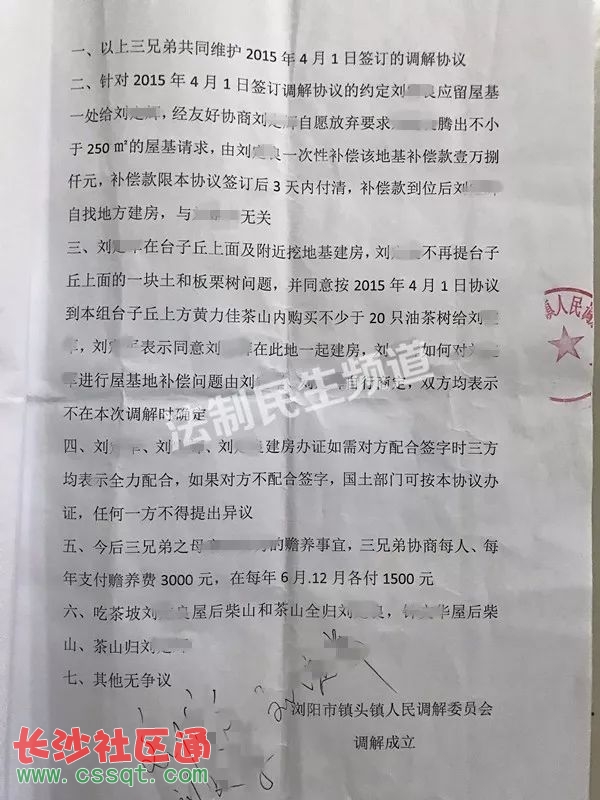 一、以上三兄弟共同维护 2015 年 4 月 1 日签订的调解协议
二、针对 2015 年 4 月 1 日签订调解协议的约定刘 良应留屋基
一处给刘 ，经友好协商刘 自愿放弃要求 腾出不小
于 250 ㎡的屋基请求，由刘 良一次性补偿该地基补偿款壹万捌
仟元，补偿款限本协议签订后 3 天内付清，补偿款到位后刘
自找地方建房，与 无关
三、刘 在台子丘上面及附近挖地基建房，刘 不再提台子
丘上面的一块土和板栗树问题，并同意按 2015 年 4 月 1 日协议
到本组台子丘上方黄力佳茶山内购买不少于 20 只油茶树给刘
，刘 表示同意刘 在此地一起建房，刘 如何对
进行屋基地补偿问题由刘 自行商定，双方均表示
不在本次调解时确定
四、刘 、刘 、刘 良建房办证如需对方配合签字时三方
均表示全力配合，如果对方不配合签字，国土部门可按本协议办
证，任何一方不得提出异议
五、今后三兄弟之母 的赡养事宜，三兄弟协商每人、每
年支付赡养费 3000 元，在每年 6 月.12 月各付 1500 元
六、吃茶坡刘 良屋后柴山和茶山全归刘 良， 华屋后柴
山、茶山归刘
七、其他无争议
浏阳市镇头镇人民调解委员会
调解成立
镇人民调
法制民生频道
长沙社区通
www.cssqt.com